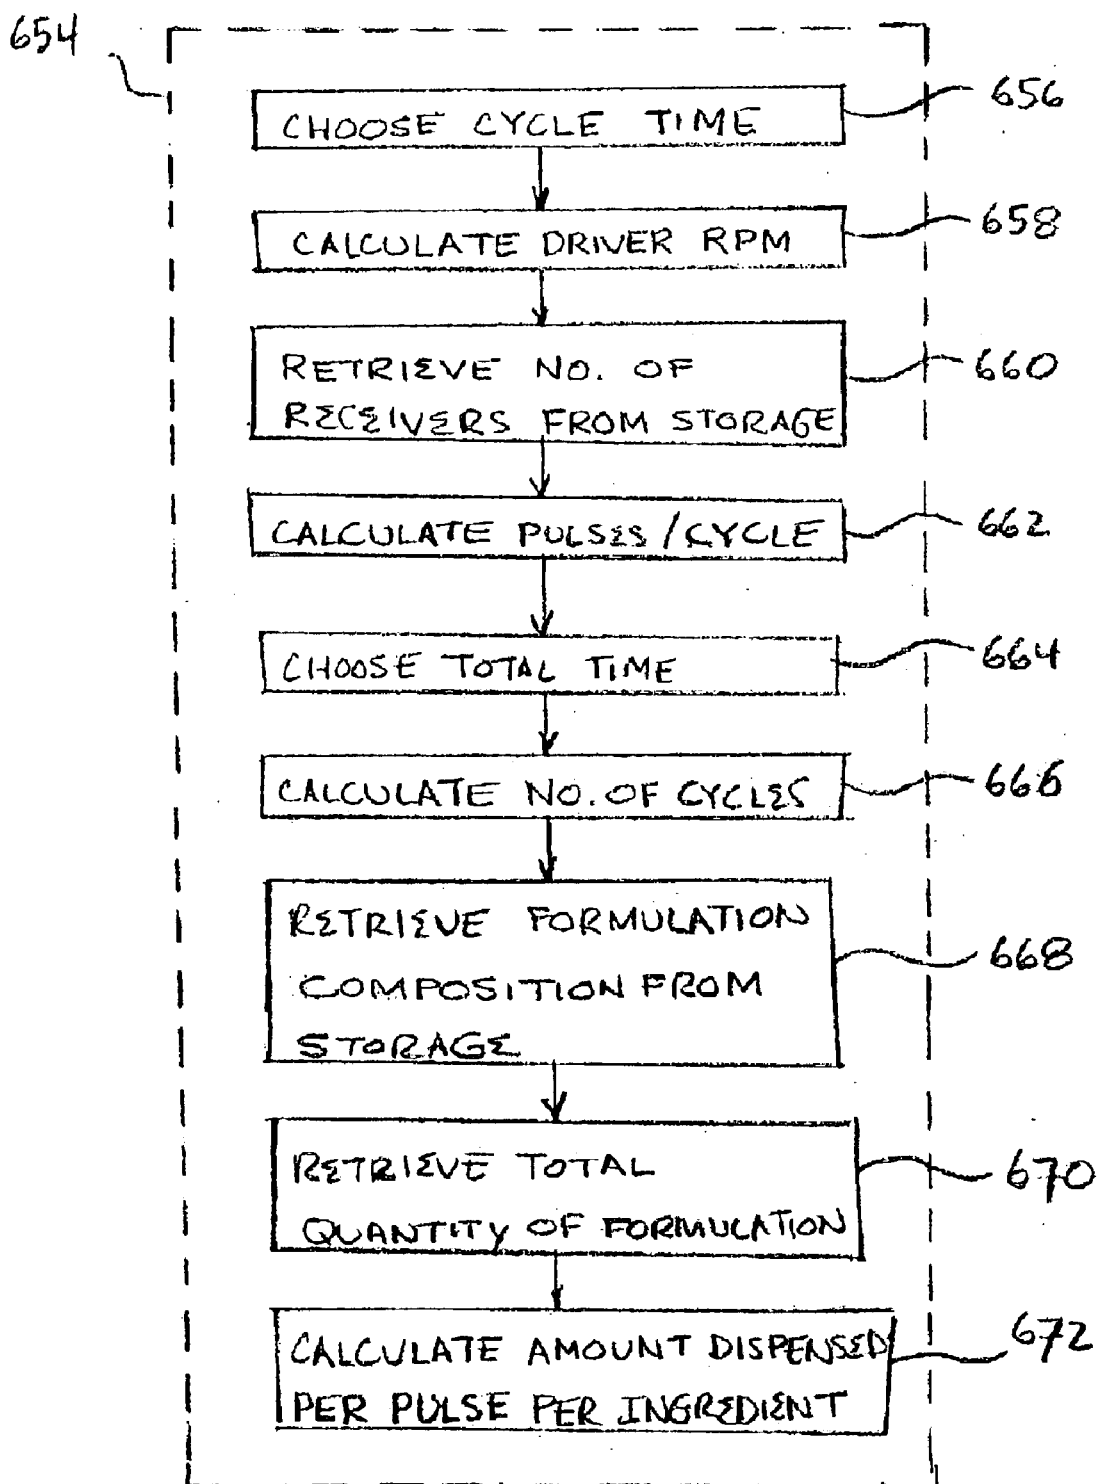 654
CHOOSE CYCLE TIME
656
CALCULATE DRIVER RPM
658
RETRIEVE NO. OF
RECEIVERS FROM STORAGE
660
CALCULATE PULSES/CYCLE
662
CHOOSE TOTAL TIME
664
CALCULATE NO. OF CYCLES
666
RETRIEVE FORMULATION
COMPOSITION FROM
STORAGE
668
RETRIEVE TOTAL
QUANTITY OF FORMULATION
670
CALCULATE AMOUNT DISPENSED
PER PULSE PER INGREDIENT
672